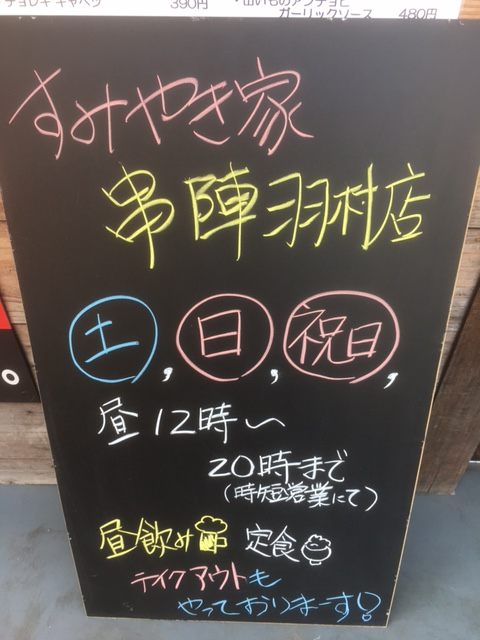 チョレギ キャベツ 390円 ・山いものアンチョビ
ガーリックソース 480円
すみやき家
串陣羽村店
土,日,祝日,
昼12時〜
20時まで
(時短営業にて)
昼飲み 定食
テイクアウトも
やっておりまーす!